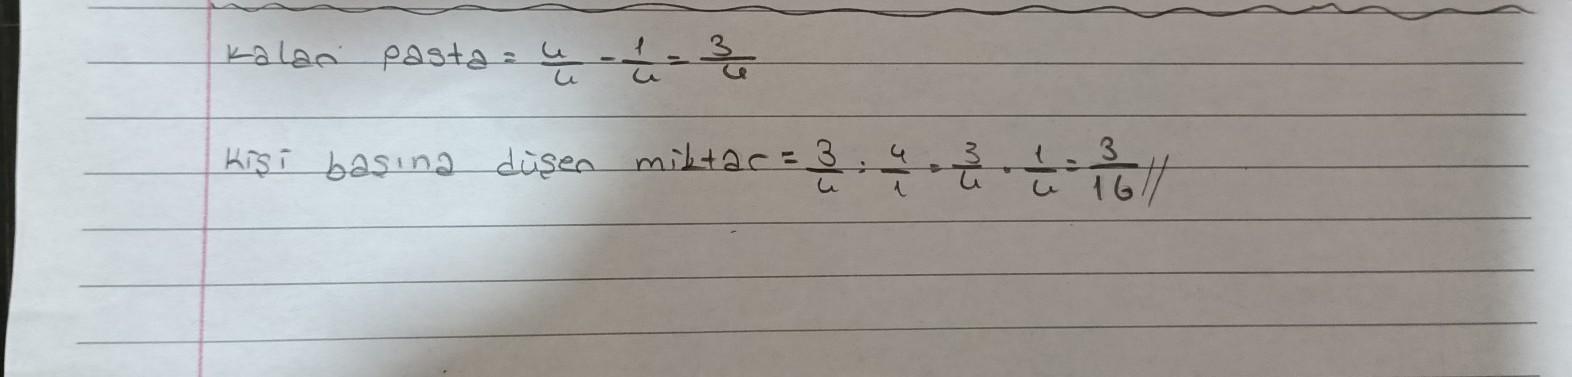 Kalan pasta = 4/4 - 1/4 = 3/4
Kişi başına düşen miktar = 3/4 : 4/1 = 3/4 . 1/4 = 3/16 //